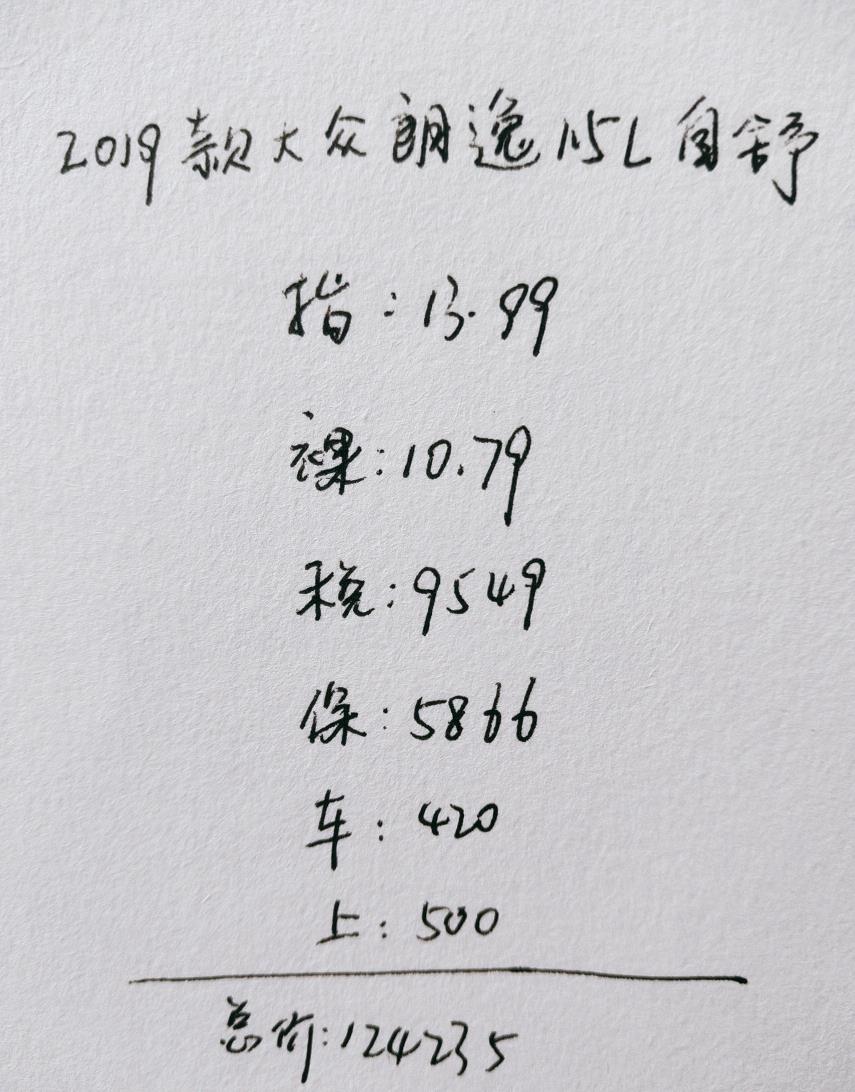 2019款大众朗逸1.5L自舒
指:13.99
裸:10.79
税:9549
保:5866
车:420
上:500
总价:124235